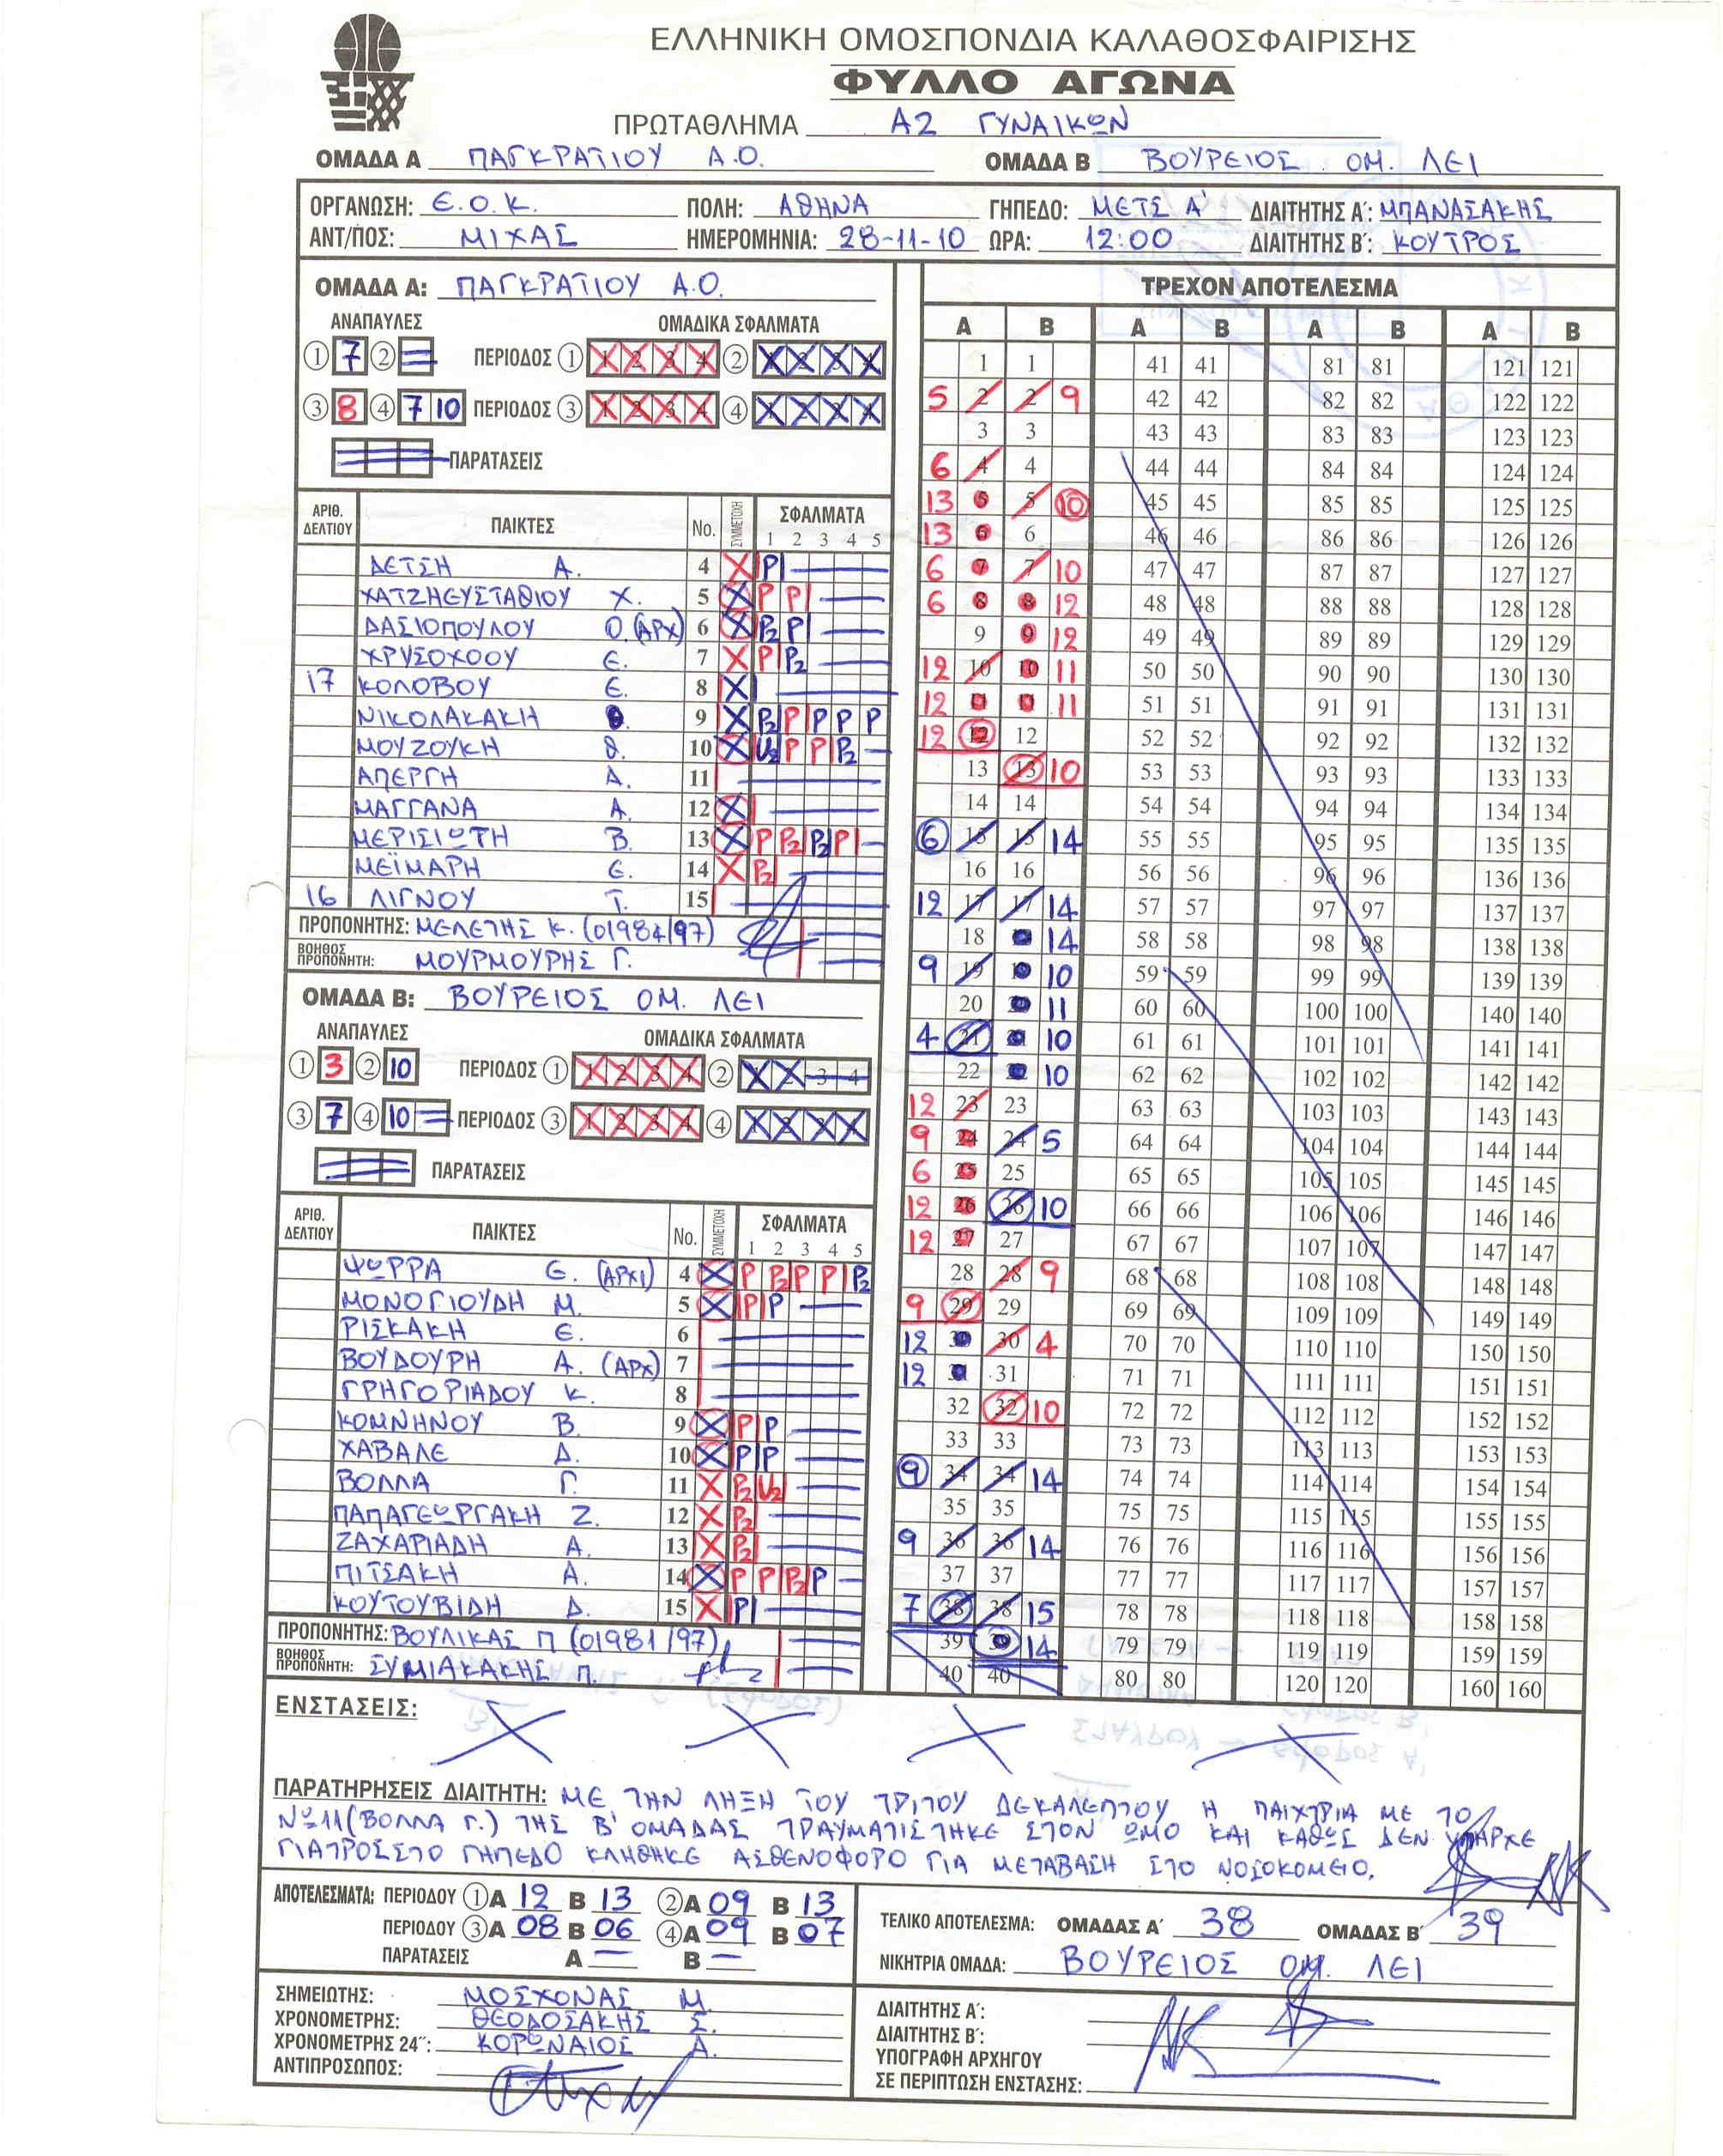 ΕΛΛΗΝΙΚΗ ΟΜΟΣΠΟΝΔΙΑ ΚΑΛΑΘΟΣΦΑΙΡΙΣΗΣ
ΦΥΛΛΟ ΑΓΩΝΑ
ΠΡΩΤΑΘΛΗΜΑ Α2 ΓΥΝΑΙΚΩΝ
ΟΜΑΔΑ Α ΠΑΓΚΡΑΤΙΟΥ Α.Ο. ΟΜΑΔΑ Β ΒΟΥΡΕΙΟΣ ΟΜ. ΛΕΙ
ΟΡΓΑΝΩΣΗ: Ε.Ο.Κ. ΠΟΛΗ: ΑΘΗΝΑ ΓΗΠΕΔΟ: ΜΕΤΣ Α' ΔΙΑΙΤΗΤΗΣ Α΄: ΜΠΑΝΑΣΑΚΗΣ
ΑΝΤ/ΠΟΣ: ΜΙΧΑΣ ΗΜΕΡΟΜΗΝΙΑ: 28-11-10 ΩΡΑ: 12:00 ΔΙΑΙΤΗΤΗΣ Β΄: ΚΟΥΤΡΟΣ
ΟΜΑΔΑ Α: ΠΑΓΚΡΑΤΙΟΥ Α.Ο.
ΑΝΑΠΑΥΛΕΣ ΟΜΑΔΙΚΑ ΣΦΑΛΜΑΤΑ
① 7 ② ΠΕΡΙΟΔΟΣ ① 1 2 3 4 ② 1 2 3 4
③ 8 ④ 7 10 ΠΕΡΙΟΔΟΣ ③ 1 2 3 4 ④ 1 2 3 4
ΠΑΡΑΤΑΣΕΙΣ
ΑΡΙΘ. ΔΕΛΤΙΟΥ ΠΑΙΚΤΕΣ No. ΣΥΜΜΕΤΟΧΗ ΣΦΑΛΜΑΤΑ
1 2 3 4 5
ΔΕΤΣΗ Α. 4 X P
ΧΑΤΖΗΕΥΣΤΑΘΙΟΥ Χ. 5 X P P
ΔΑΣΙΟΠΟΥΛΟΥ Ο. (ΑΡΧ) 6 X P2 P
ΧΡΥΣΟΧΟΟΥ Ε. 7 X P P2
17 ΚΟΛΟΒΟΥ Ε. 8 X
ΝΙΚΟΛΑΚΑΚΗ Θ. 9 X P2 P P P P
ΜΟΥΖΟΥΚΗ Θ. 10 X U2 P P P2
ΑΠΕΡΓΗ Α. 11
ΜΑΓΓΑΝΑ Α. 12 X
ΜΕΡΙΣΙΩΤΗ Β. 13 X P P2 P2 P
ΜΕΪΜΑΡΗ Ε. 14 X P2
16 ΛΙΓΝΟΥ Τ. 15
ΠΡΟΠΟΝΗΤΗΣ: ΜΕΛΕΤΗΣ Κ. (01984/97)
ΒΟΗΘΟΣ ΠΡΟΠΟΝΗΤΗ: ΜΟΥΡΜΟΥΡΗΣ Γ.
ΟΜΑΔΑ Β: ΒΟΥΡΕΙΟΣ ΟΜ. ΛΕΙ
ΑΝΑΠΑΥΛΕΣ ΟΜΑΔΙΚΑ ΣΦΑΛΜΑΤΑ
① 3 ② 10 ΠΕΡΙΟΔΟΣ ① 1 2 3 4 ② 1 2 3 4
③ 7 ④ 10 ΠΕΡΙΟΔΟΣ ③ 1 2 3 4 ④ 1 2 3 4
ΠΑΡΑΤΑΣΕΙΣ
ΑΡΙΘ. ΔΕΛΤΙΟΥ ΠΑΙΚΤΕΣ No. ΣΥΜΜΕΤΟΧΗ ΣΦΑΛΜΑΤΑ
1 2 3 4 5
ΨΩΡΡΑ Ε. (ΑΡΧ) 4 X P P2 P P P2
ΜΟΝΟΓΙΟΥΔΗ Μ. 5 X P P
ΡΙΣΚΑΚΗ Ε. 6
ΒΟΥΔΟΥΡΗ Α. (ΑΡΧ) 7
ΓΡΗΓΟΡΙΑΔΟΥ Κ. 8
ΚΟΜΝΗΝΟΥ Β. 9 X P P
ΧΑΒΑΛΕ Δ. 10 X P P
ΒΟΛΛΑ Γ. 11 X P2 U2
ΠΑΠΑΓΕΩΡΓΑΚΗ Ζ. 12 X P2
ΖΑΧΑΡΙΑΔΗ Α. 13 X P2
ΠΙΤΣΑΚΗ Α. 14 X P P P2 P
ΚΟΥΤΟΥΒΙΔΗ Δ. 15 X P
ΠΡΟΠΟΝΗΤΗΣ: ΒΟΥΛΙΚΑΣ Π (01981/97)
ΒΟΗΘΟΣ ΠΡΟΠΟΝΗΤΗ: ΣΥΜΙΑΚΑΚΗΣ Π.
ΤΡΕΧΟΝ ΑΠΟΤΕΛΕΣΜΑ
Α Β Α Β Α Β Α Β
1 1 41 41 81 81 121 121
5 2 2 9 42 42 82 82 122 122
3 3 43 43 83 83 123 123
6 4 4 44 44 84 84 124 124
13 5 5 10 45 45 85 85 125 125
13 6 6 46 46 86 86 126 126
6 7 7 10 47 47 87 87 127 127
6 8 8 12 48 48 88 88 128 128
9 9 12 49 49 89 89 129 129
12 10 10 11 50 50 90 90 130 130
12 11 11 11 51 51 91 91 131 131
12 12 12 52 52 92 92 132 132
13 13 10 53 53 93 93 133 133
14 14 54 54 94 94 134 134
6 15 15 14 55 55 95 95 135 135
16 16 56 56 96 96 136 136
12 17 17 14 57 57 97 97 137 137
18 18 14 58 58 98 98 138 138
9 19 19 10 59 59 99 99 139 139
20 20 11 60 60 100 100 140 140
4 21 21 10 61 61 101 101 141 141
22 22 10 62 62 102 102 142 142
12 23 23 63 63 103 103 143 143
9 24 24 5 64 64 104 104 144 144
6 25 25 65 65 105 105 145 145
12 26 26 10 66 66 106 106 146 146
12 27 27 67 67 107 107 147 147
28 28 9 68 68 108 108 148 148
9 29 29 69 69 109 109 149 149
12 30 30 4 70 70 110 110 150 150
12 31 31 71 71 111 111 151 151
32 32 10 72 72 112 112 152 152
33 33 73 73 113 113 153 153
9 34 34 14 74 74 114 114 154 154
35 35 75 75 115 115 155 155
9 36 36 14 76 76 116 116 156 156
37 37 77 77 117 117 157 157
7 38 38 15 78 78 118 118 158 158
39 39 14 79 79 119 119 159 159
40 40 80 80 120 120 160 160
ΕΝΣΤΑΣΕΙΣ:
ΠΑΡΑΤΗΡΗΣΕΙΣ ΔΙΑΙΤΗΤΗ: ΜΕ ΤΗΝ ΛΗΞΗ ΤΟΥ ΤΡΙΤΟΥ ΔΕΚΑΛΕΠΤΟΥ Η ΠΑΙΧΤΡΙΑ ΜΕ ΤΟ
Νο 11 (ΒΟΛΛΑ Γ.) ΤΗΣ Β' ΟΜΑΔΑΣ ΤΡΑΥΜΑΤΙΣΤΗΚΕ ΣΤΟΝ ΩΜΟ ΚΑΙ ΚΑΘΩΣ ΔΕΝ ΥΠΗΡΧΕ
ΓΙΑΤΡΟΣ ΣΤΟ ΓΗΠΕΔΟ ΚΛΗΘΗΚΕ ΑΣΘΕΝΟΦΟΡΟ ΓΙΑ ΜΕΤΑΒΑΣΗ ΣΤΟ ΝΟΣΟΚΟΜΕΙΟ.
ΑΠΟΤΕΛΕΣΜΑΤΑ: ΠΕΡΙΟΔΟΥ ① Α 12 Β 13 ② Α 09 Β 13
ΠΕΡΙΟΔΟΥ ③ Α 08 Β 06 ④ Α 09 Β 07
ΠΑΡΑΤΑΣΕΙΣ Α — Β —
ΤΕΛΙΚΟ ΑΠΟΤΕΛΕΣΜΑ: ΟΜΑΔΑΣ Α΄ 38 ΟΜΑΔΑΣ Β΄ 39
ΝΙΚΗΤΡΙΑ ΟΜΑΔΑ: ΒΟΥΡΕΙΟΣ ΟΜ. ΛΕΙ
ΣΗΜΕΙΩΤΗΣ: ΜΟΣΧΟΝΑΣ Μ.
ΧΡΟΝΟΜΕΤΡΗΣ: ΘΕΟΔΟΣΑΚΗΣ Σ.
ΧΡΟΝΟΜΕΤΡΗΣ 24΄΄: ΚΟΡΩΝΑΙΟΣ Α.
ΑΝΤΙΠΡΟΣΩΠΟΣ:
ΔΙΑΙΤΗΤΗΣ Α΄:
ΔΙΑΙΤΗΤΗΣ Β΄:
ΥΠΟΓΡΑΦΗ ΑΡΧΗΓΟΥ
ΣΕ ΠΕΡΙΠΤΩΣΗ ΕΝΣΤΑΣΗΣ: